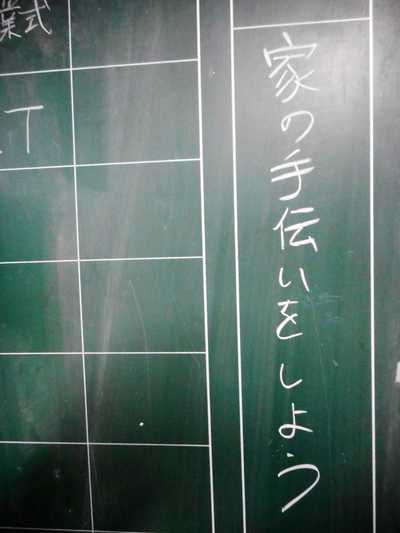 家の手伝いをしよう
業式
T